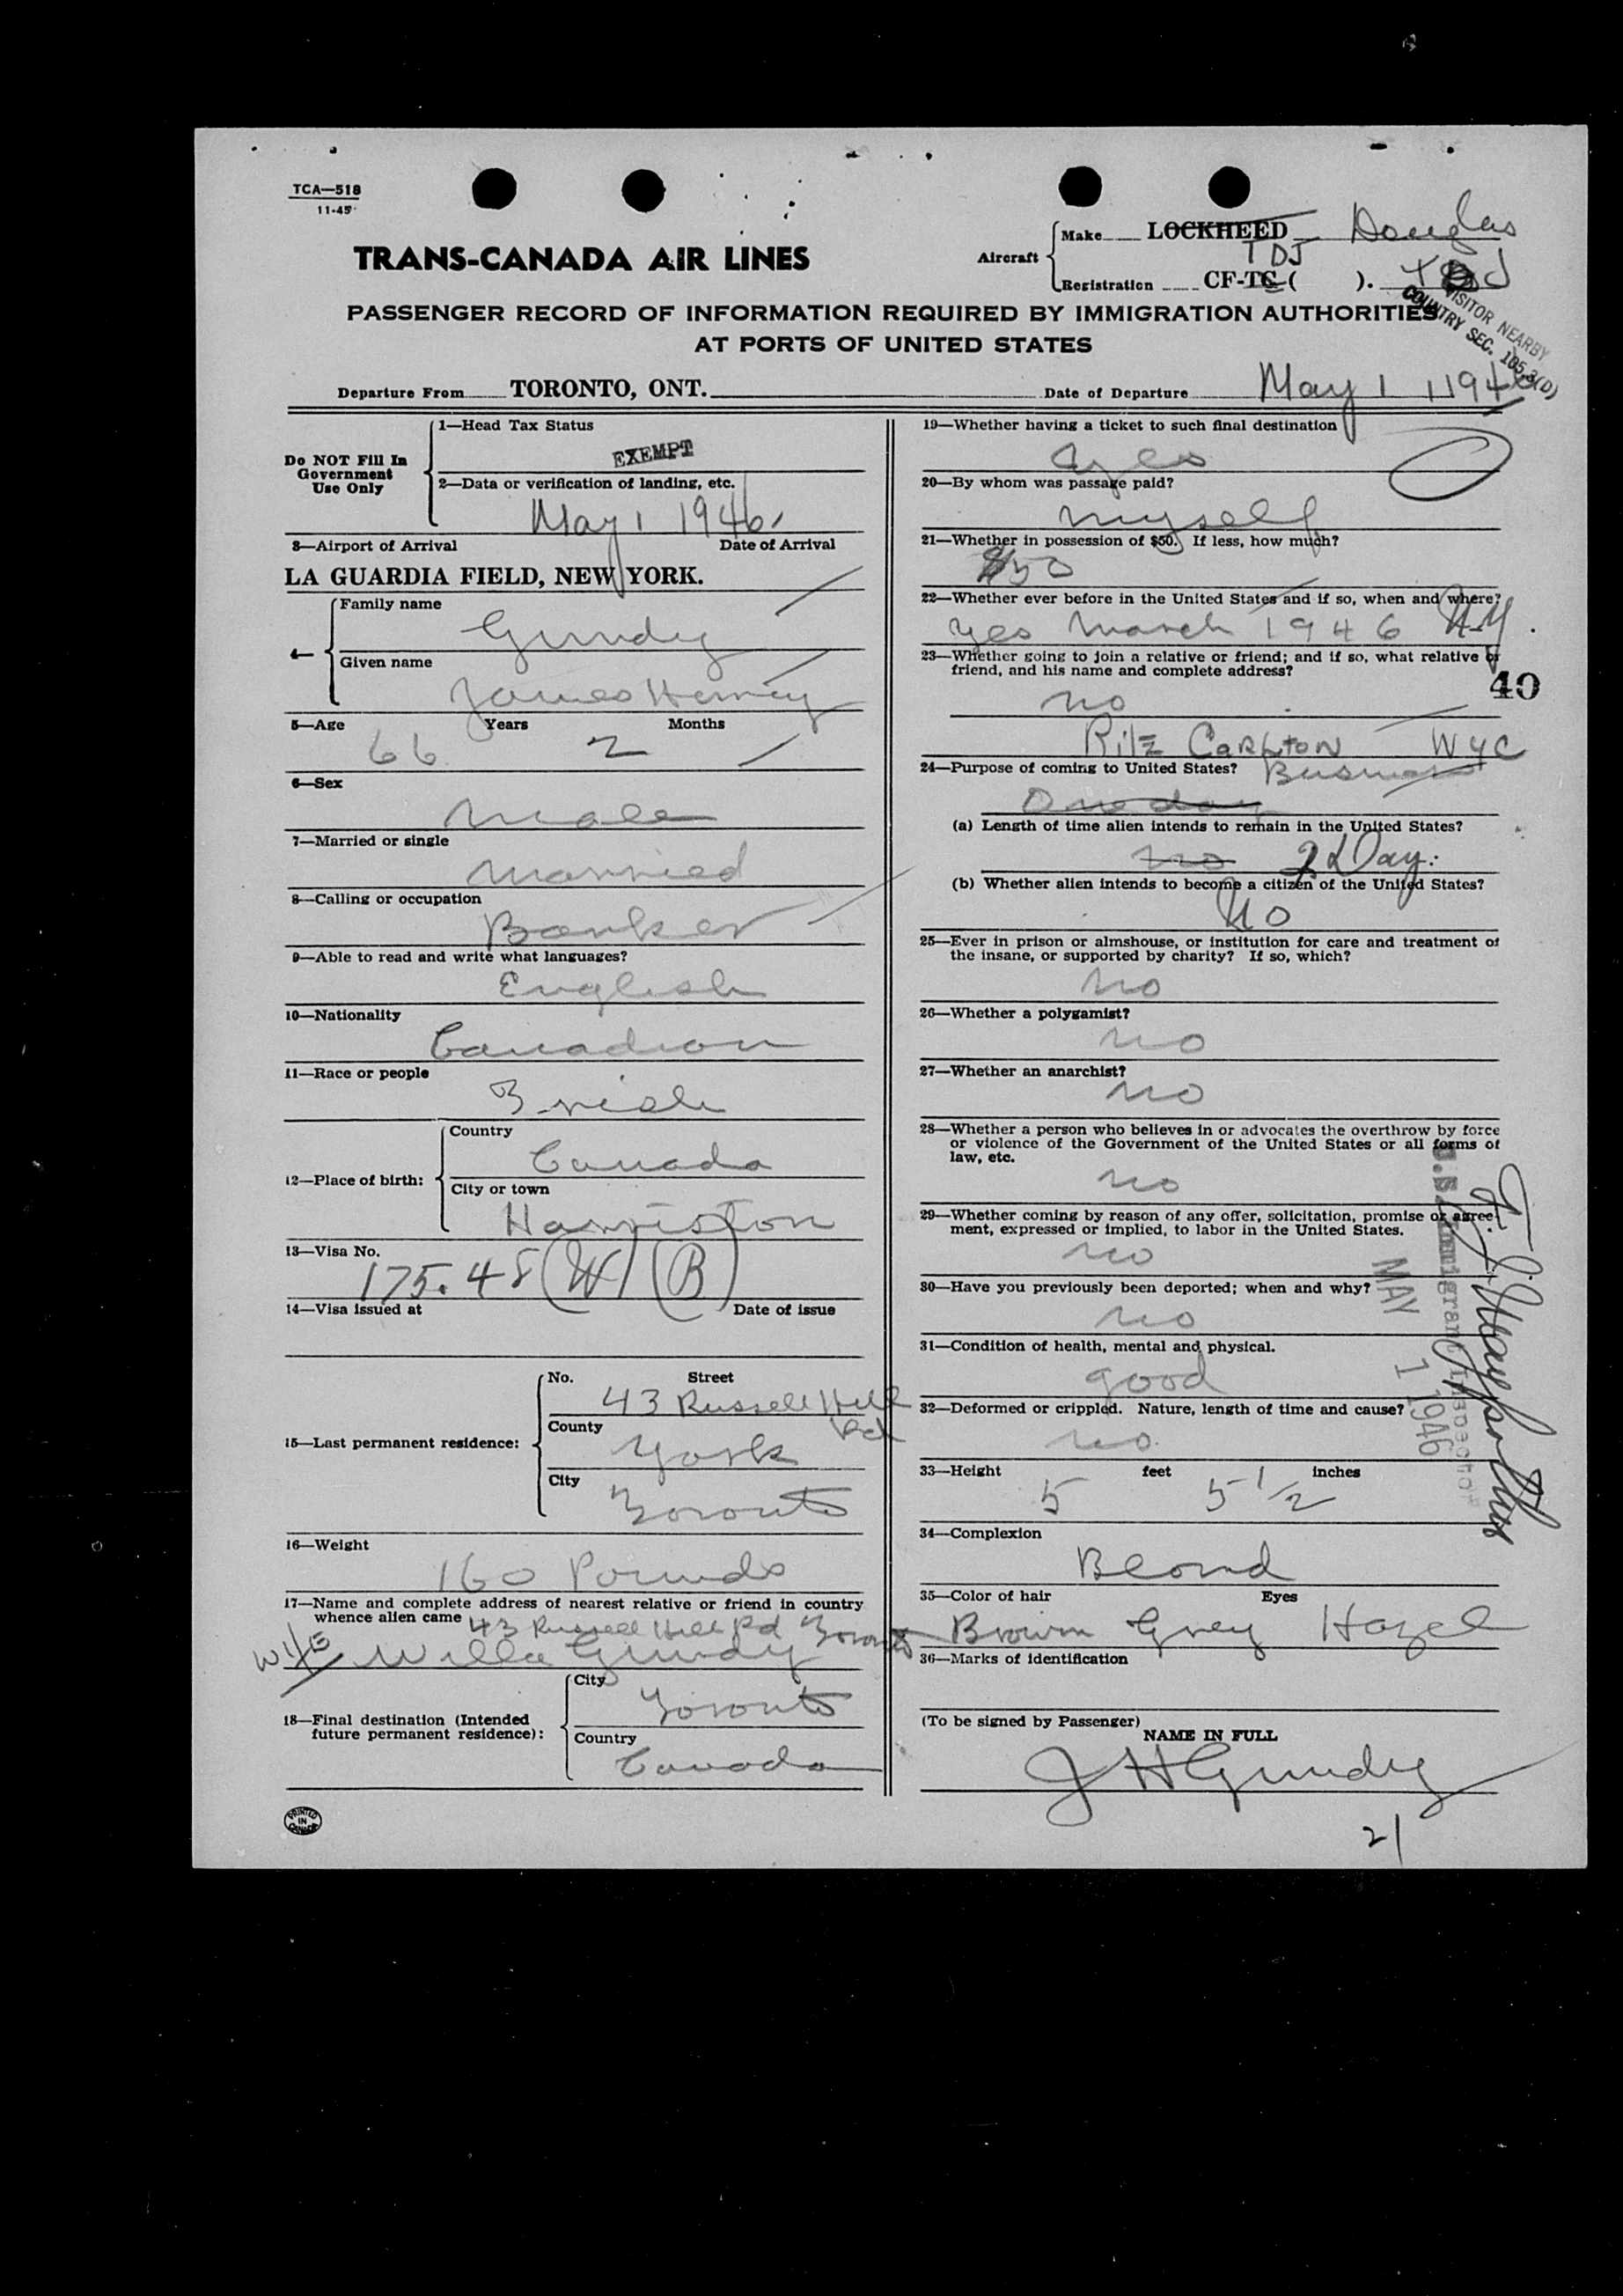 TCA—518
11-45
TRANS-CANADA AIR LINES
Aircraft
Make LOCKHEED Douglas
TDJ
Registration CF-TC-( ).
VISITOR NEARBY
COUNTRY SEC. 105.3(D)
PASSENGER RECORD OF INFORMATION REQUIRED BY IMMIGRATION AUTHORITIES
AT PORTS OF UNITED STATES
Departure From TORONTO, ONT. Date of Departure May 1 1946
Do NOT Fill In
Government
Use Only
1—Head Tax Status
EXEMPT
2—Data or verification of landing, etc.
May 1 1946
3—Airport of Arrival Date of Arrival
LA GUARDIA FIELD, NEW YORK.
4—
Family name
Gundy
Given name
James Henry
5—Age Years Months
66 2
6—Sex
Male
7—Married or single
Married
8—Calling or occupation
Banker
9—Able to read and write what languages?
English
10—Nationality
Canadian
11—Race or people
12—Place of birth:
Country
Canada
City or town
Harriston
13—Visa No.
175.48 (W) (B)
14—Visa issued at Date of issue
15—Last permanent residence:
No. Street
43 Russell Hill
Rd
County
York
City
Toronto
16—Weight
160 Pounds
17—Name and complete address of nearest relative or friend in country
whence alien came
43 Russell Hill Rd Toronto
Wife Willa Gundy
18—Final destination (Intended
future permanent residence):
City
Toronto
Country
Canada
PRINTED
IN
CANADA
19—Whether having a ticket to such final destination
Yes
20—By whom was passage paid?
Myself
21—Whether in possession of $50. If less, how much?
$50
22—Whether ever before in the United States and if so, when and where?
Yes March 1946 N.Y.
23—Whether going to join a relative or friend; and if so, what relative or
friend, and his name and complete address?
40
No
Ritz Carlton NYC
24—Purpose of coming to United States? Business
One day
(a) Length of time alien intends to remain in the United States?
No 2 Day.
(b) Whether alien intends to become a citizen of the United States?
No
25—Ever in prison or almshouse, or institution for care and treatment of
the insane, or supported by charity? If so, which?
No
26—Whether a polygamist?
No
27—Whether an anarchist?
No
28—Whether a person who believes in or advocates the overthrow by force
or violence of the Government of the United States or all forms of
law, etc.
No
29—Whether coming by reason of any offer, solicitation, promise or agree-
ment, expressed or implied, to labor in the United States.
No
30—Have you previously been deported; when and why?
No
31—Condition of health, mental and physical.
good
32—Deformed or crippled. Nature, length of time and cause?
No
33—Height feet inches
5 5 1/2
34—Complexion
Blond
35—Color of hair Eyes
Brown Grey Hazel
36—Marks of identification
(To be signed by Passenger)
NAME IN FULL
J H Gundy
21
MAY 1 1946
U.S. Immigrant Inspector